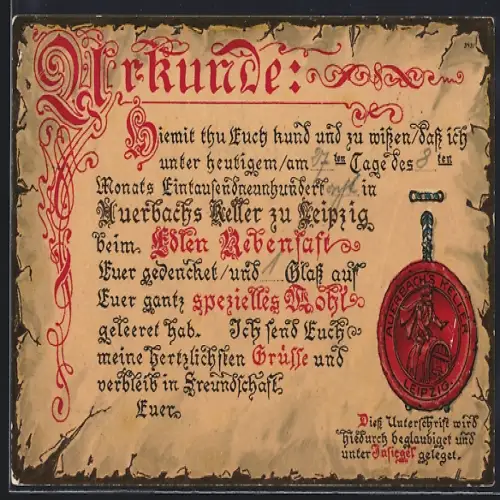 Urkunde:
Hiemit thu Euch kund und zu wißen/daß ich
unter heutigem/am 27 ten Tage des 8 ten
Monats Eintausendneunhundert in
Auerbachs Keller zu Leipzig
beim Edlen Rebensaft
Euer gedencket/und 1 Glaß auf
Euer gantz spezielles Wohl
geleeret hab. Ich send Euch
meine hertzlichsten Grüsse und
verbleib in Freundschaft
Euer
AUERBACHS KELLER
LEIPZIG
Dieß Unterschrift wird
hiedurch beglaubiget und
unter Insiegel geleget.